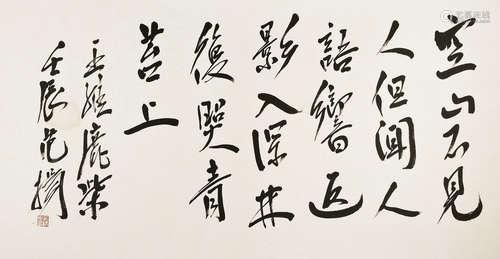 空山不見
人但聞人
語響返
影入深林
復照青
苔上
王維鹿柴
壬辰范擴